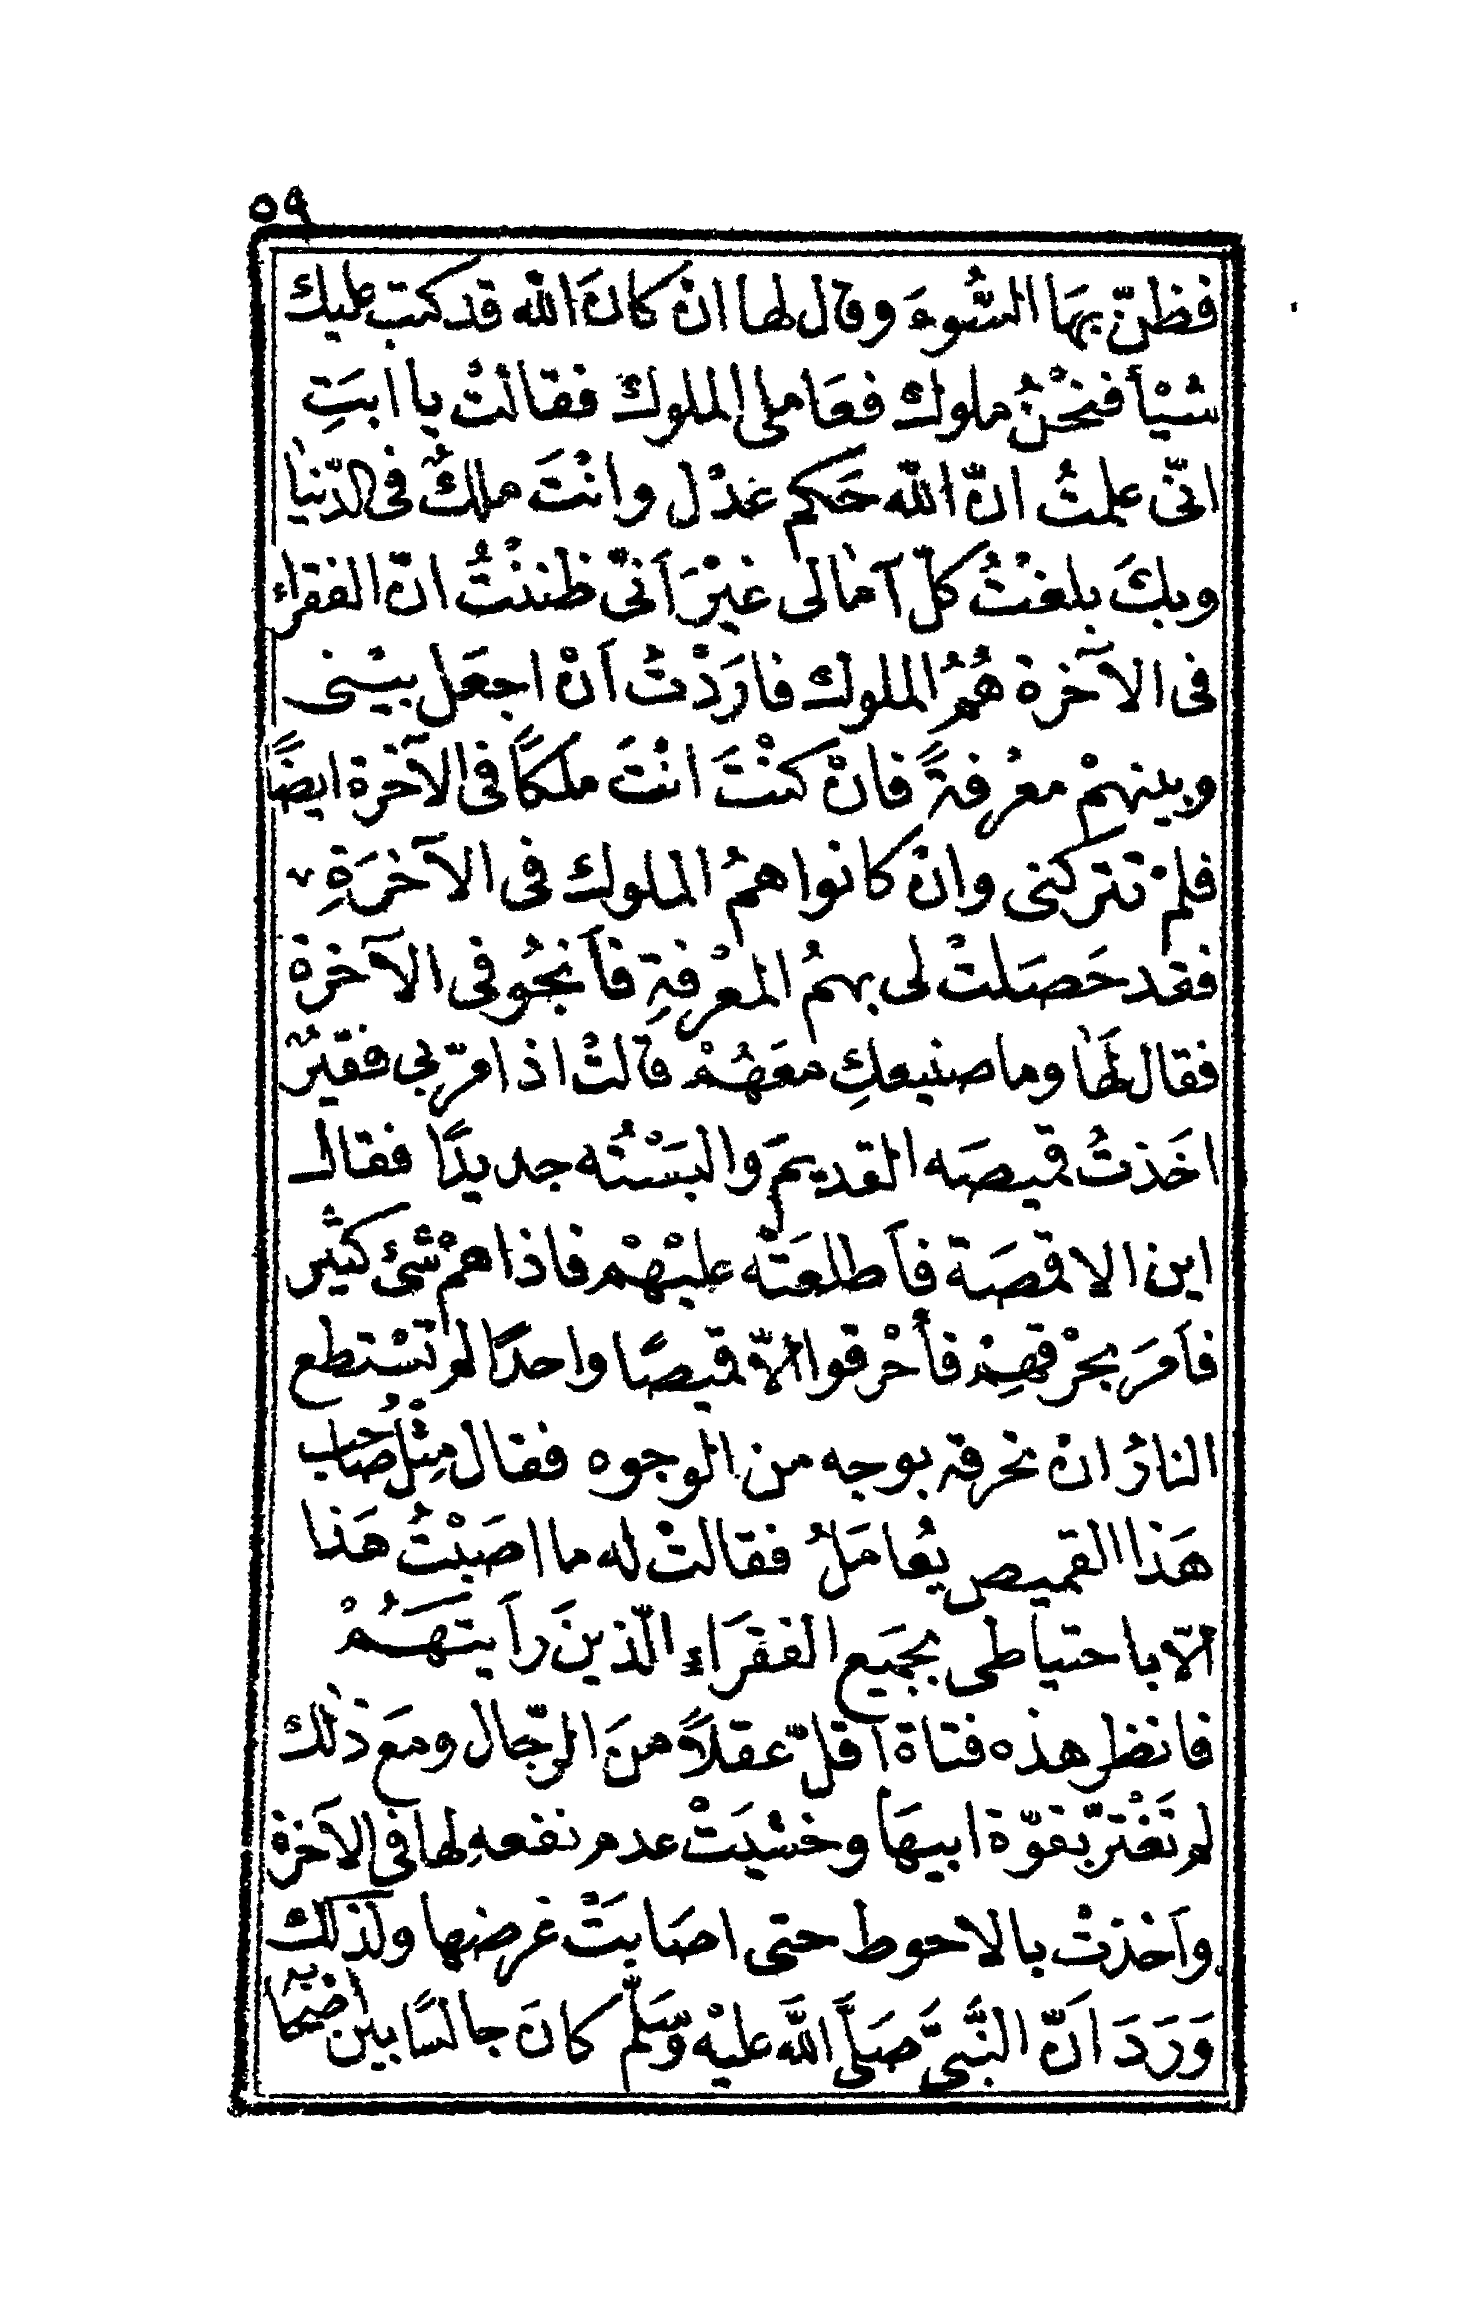 ٥٩
فظنّ بهَا السُّوءَ وقال لها انْ كانَ الله قد كتب عليك
شيْأ فنحْنُ ملوك فعَاملى الملوك فقالتْ يا ابَتِ
انّى علمتُ انّ الله حَكم عَدْل وانْتَ ملكٌ فى الدّنيا
وبكَ بلغْتُ كلّ آمالى غيْرَ اَنّى ظننْتُ انّ الفقراء
فى الآخرة هُمُ الملوك فارَدْتُ اَنْ اجعَل بيْنى
وبينهمْ معرُفةً فانْ كنْتَ انْتَ ملكًا فى الآخرة ايضًا
فلمْ تتركنى وانْ كانوا همُ الملوك فى الآخرَةِ
فقد حَصَلتْ لى بهمُ المعْرفةِ فاَنجُو فى الآخرة
فقال لهَا وما صنيعكِ معَهُمْ قالتْ اذا مرّ بى فقيرٌ
اخَذتُ قميصَه القديمَ والبَسْتُه جديدًا فقال
اين الاقمصَة فاَطلعَتْه عليْهمْ فاذا همْ شئ كثير
فاَمَرَ بحرْقهِمْ فأحْرقوا الاّ قميصًا واحدًا لم تسْتطع
النارُ انْ تحرقه بوجه من الوجوه فقال مِثْلُ صَاحب
هَذا القميص يُعامَلُ فقالتْ له ما اصَبْتُ هَذا
الاّ باحتياطى بجميَع الفقرَاءِ الّذينَ راَيتهَمُْ
فانظر هذه فتاة اَقلّ عقلاً منَ الرّجال ومَع ذلك
لم تَغْترّ بقوّة ابيهَا وخشيَتْ عدم نفعهِ لها فى الاَخرة
واَخذتْ بالاحوط حتى اصَابَتْ غرضها ولذلك
وَرَدَ اَنّ النّبىَّ صَلَّى اللَّه عليْه وَسَلّم كانَ جالسًا بين اَصْحابه